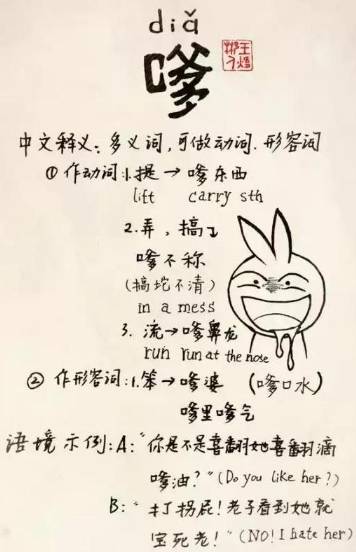 diǎ
嗲
中文释义：多义词，可做动词.形容词
① 作动词:1.提→嗲东西
lift carry sth
2.弄，搞
嗲不称
(搞坨不清)
in a mess
3. 流→嗲鼻龙
run run at the nose
② 作形容词:1.笨→嗲婆 (嗲口水)
嗲里嗲气
语境示例:A:"你是不是喜翻她喜翻滴
嗲油?"(Do you like her?)
B:"打拐屁!老子看到她就
宝死老!"(NO! I hate her)